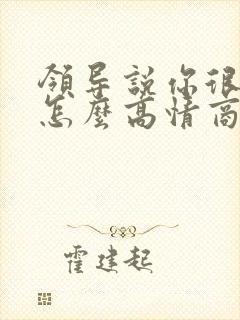 領导說你很
怎麼高情商
霍建起